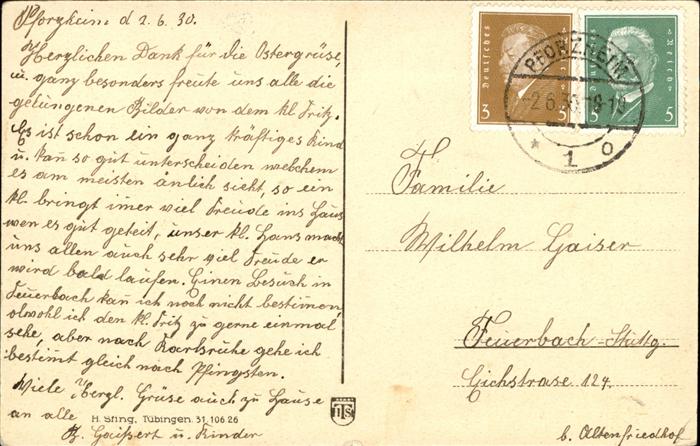 Pforzheim d 2.6.30.
Herzlichen Dank für die Ostergrüse,
u. ganz besonders freute uns alle die
gelungenen Bilder von dem kl. Fritz.
Es ist schon ein ganz kräftiges Kind
u. kan so gut unterscheiden welchem
es am meisten änlich sieht, so ein
kl. bringt imer viel Freude ins Haus
wen es gut geheit, unser kl. Hans macht
uns allen auch sehr viel Freude er
wird bald laufen. Einen Besuch in
Feuerbach kan ich noch nicht bestimen,
olwohl ich den kl. Fritz zu gerne einmal
sehe, aber nach Karlsruhe gehe ich
bestimt gleich nach Pfingsten.
Viele Herzl. Grüse auch zu Hause
an alle
H. Sting, Tübingen. 31. 106 26
Gaißert u. Kinder
Deutsches Reich
3 3
5 5
PFORZHEIM
-2.6.30.18-19
* 1 o
Familie
Wilhelm Gaiser
Feuerbach-Stuttg.
Eichstrase 124.
b. Altenfriedhof